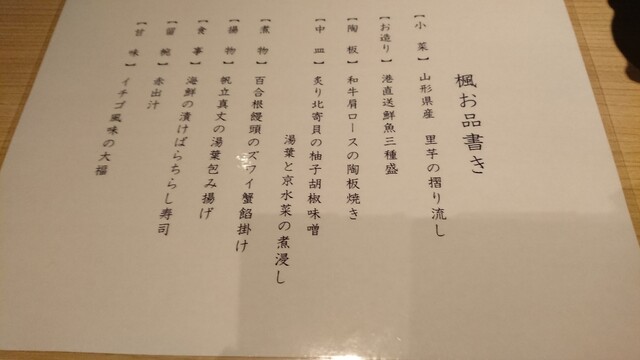 楓お品書き
【小菜】山形県産 里芋の摺り流し
【お造り】港直送鮮魚三種盛
【陶板】和牛肩ロースの陶板焼き
【中皿】炙り北寄貝の柚子胡椒味噌
湯葉と京水菜の煮浸し
【煮物】百合根饅頭のズワイ蟹餡掛け
【揚物】帆立真丈の湯葉包み揚げ
【食事】海鮮の漬けばらちらし寿司
【留椀】赤出汁
【甘味】イチゴ風味の大福